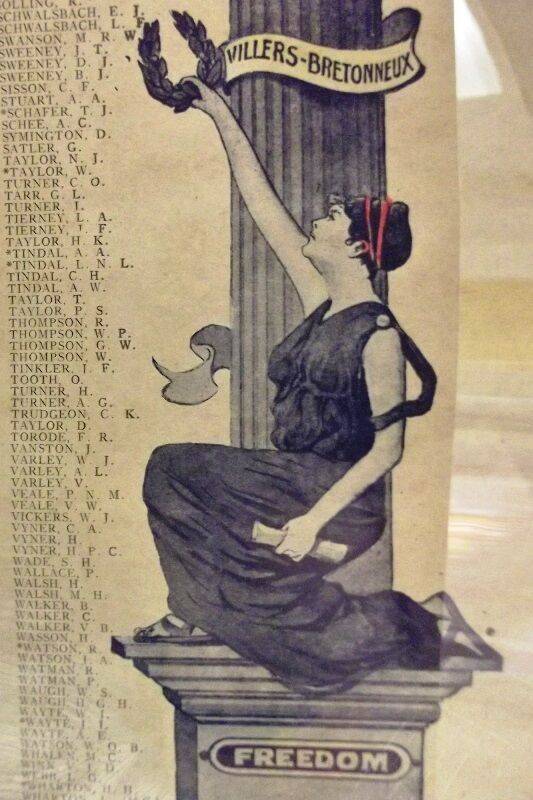 SCHWALSBACH, E. J.
SCHWALSBACH, L. F.
SWANSON, M. R. W.
SWEENEY, J. T.
SWEENEY, D. J.
SWEENEY, B. J.
SISSON, C. F.
STUART, A. A.
*SCHAFER, T. J.
SCHEE, A. C.
SYMINGTON, D.
SATLER, G.
TAYLOR, N. J.
*TAYLOR, W.
TURNER, C. O.
TARR, G. L.
TURNER, I.
TIERNEY, L. A.
TIERNEY, J. F.
TAYLOR, H. K.
*TINDAL, A. A.
*TINDAL, L. N. L.
TINDAL, C. H.
TINDAL, A. W.
TAYLOR, T.
TAYLOR, P. S.
THOMPSON, R.
THOMPSON, W. P.
THOMPSON, G. W.
THOMPSON, W.
TINKLER, J. F.
TOOTH, O.
TURNER, H.
TURNER, A. G.
TRUDGEON, C. K.
TAYLOR, D.
TORODE, F. R.
VANSTON, J.
VARLEY, W. J.
VARLEY, A. L.
VARLEY, V.
VEALE, P. N. M.
VEALE, V. W.
VICKERS, W. J.
VYNER, C. A.
VYNER, H.
VYNER, H. P. C.
WADE, S. H.
WALLACE, P.
WALSH, H.
WALSH, M. H.
WALKER, B.
WALKER, C.
WALKER, V. B.
WASSON, H.
*WATSON, R.
WATSON, J. A.
WATMAN, R.
WATMAN, P.
WAUGH, W. S.
WAUGH, H. G. H.
WAYTE, W. J.
*WAYTE, J. L.
WAYTE, A. E.
WATSON, W. O. B.
WHALEN, M. C.
VILLERS-BRETONNEUX
FREEDOM